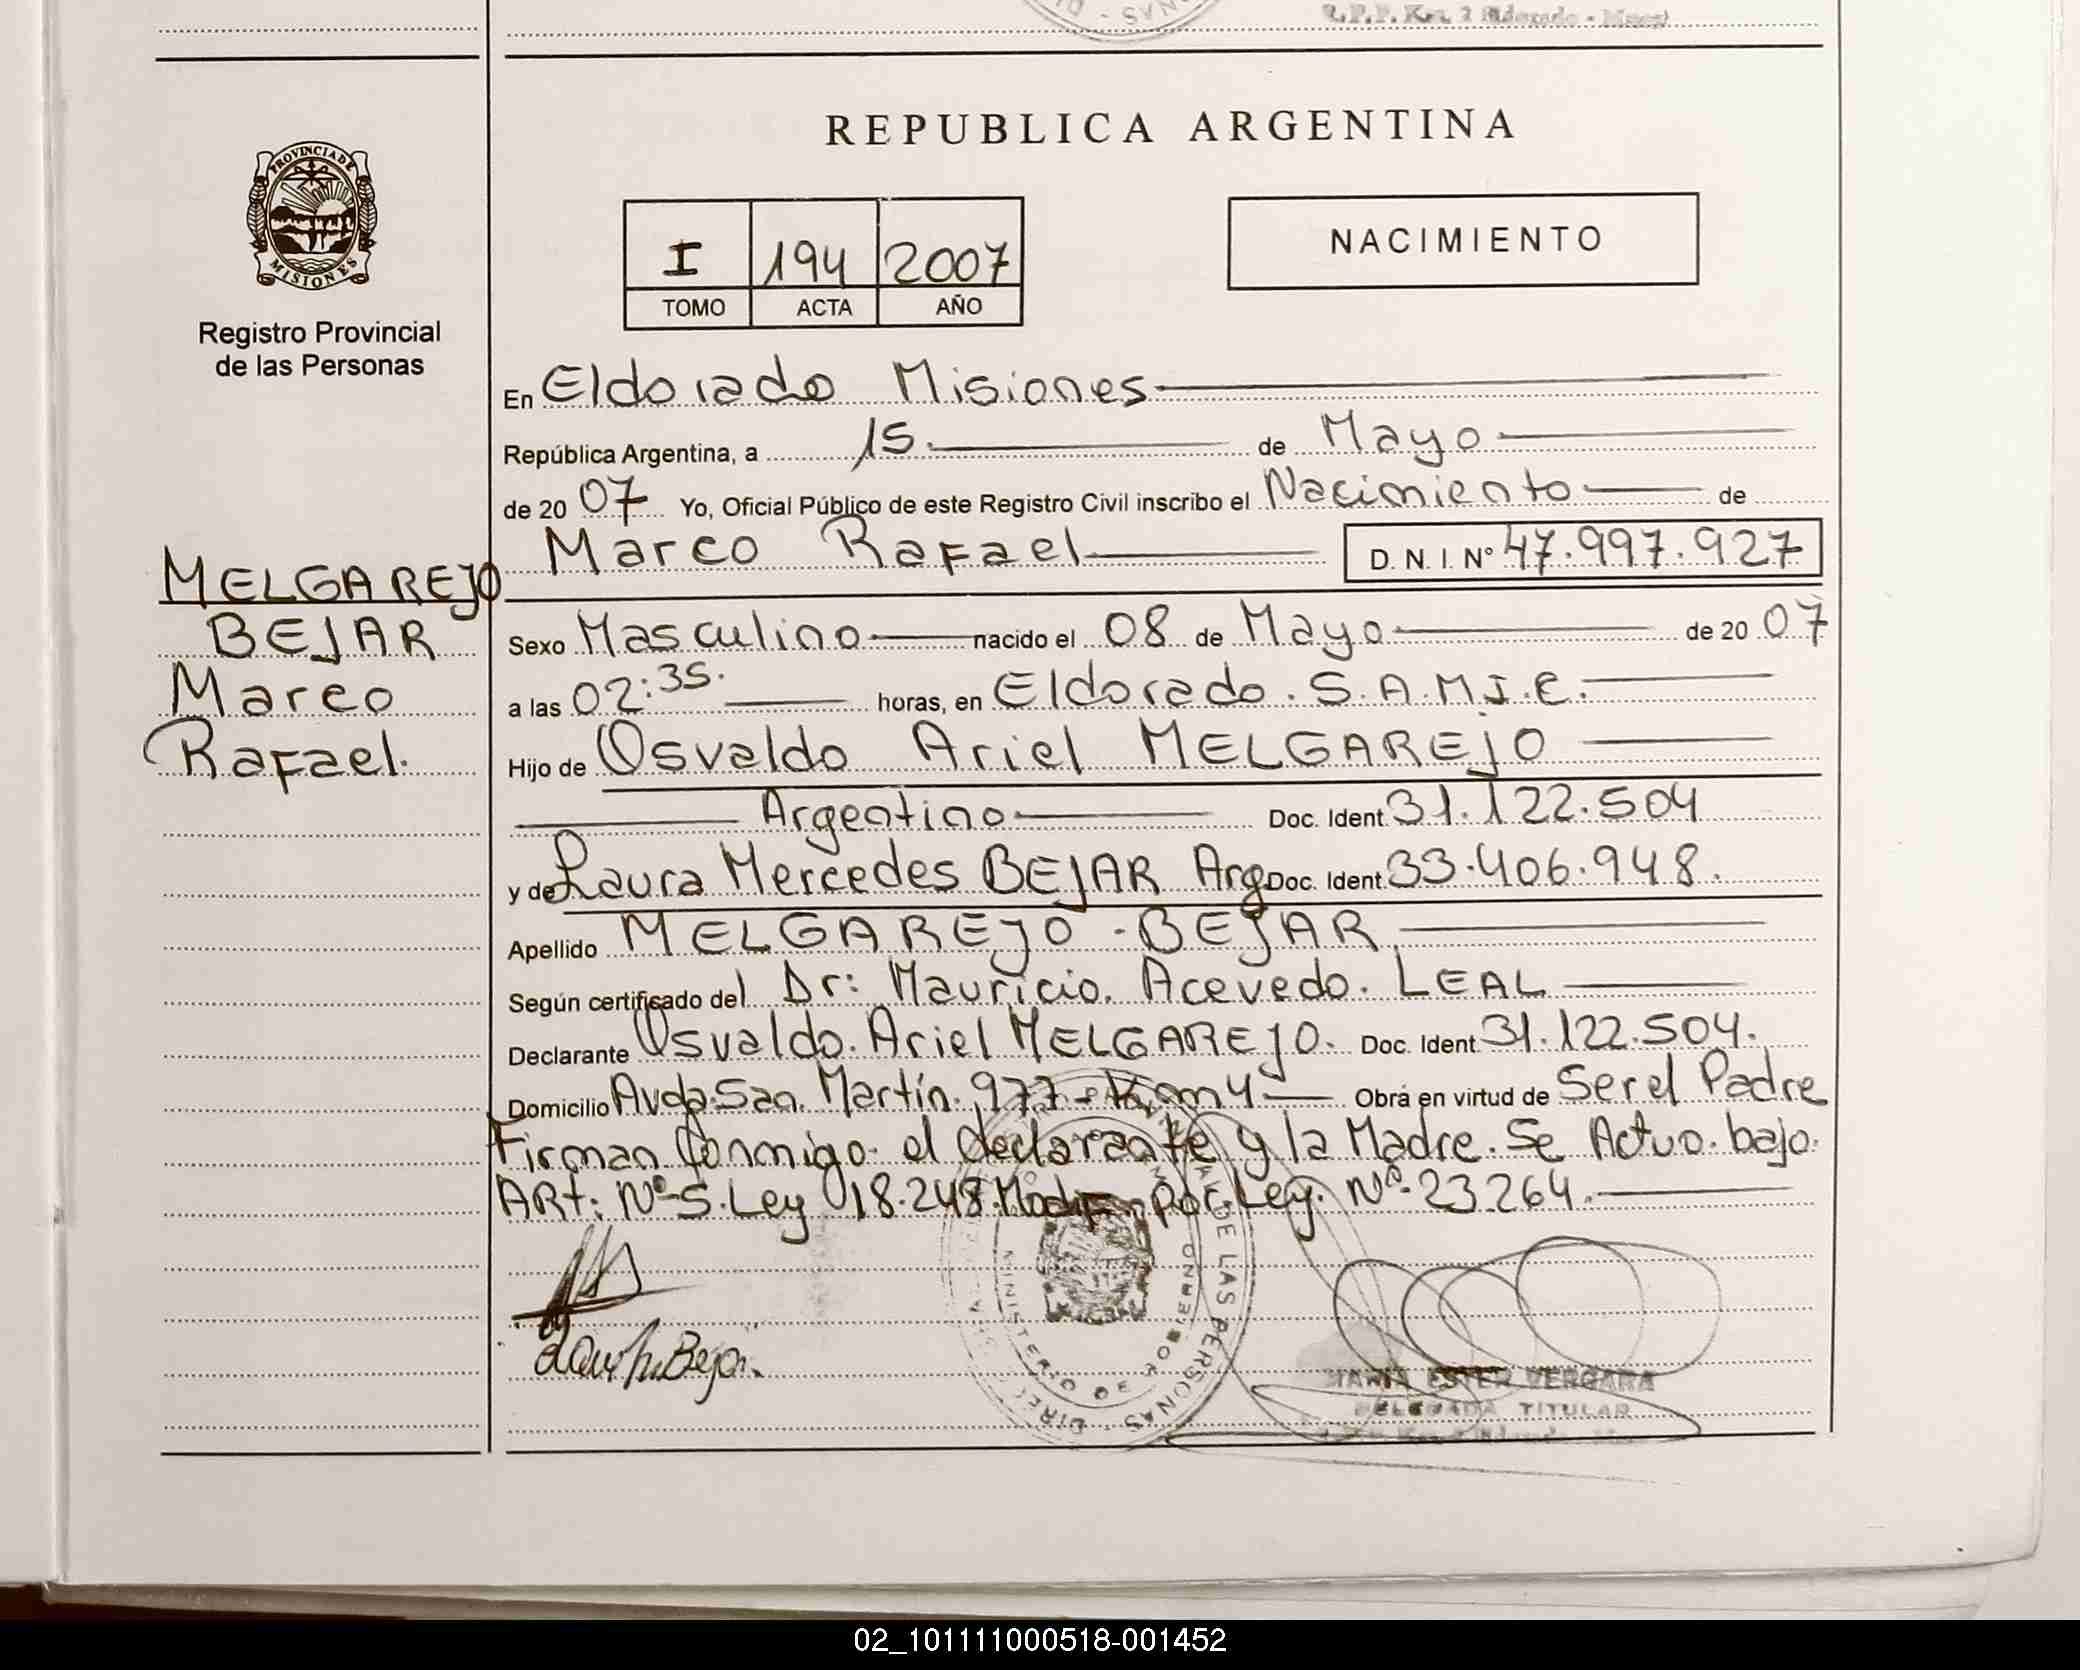 REPUBLICA ARGENTINA
PROVINCIA DE
MISIONES
Registro Provincial
de las Personas
I 194 2007
TOMO ACTA AÑO
NACIMIENTO
En Eldorado Misiones
República Argentina, a 15 de Mayo
de 20 07 Yo, Oficial Público de este Registro Civil inscribo el Nacimiento de
Marco Rafael D. N. I. Nº 47.997.927
MELGAREJO
BEJAR
Marco
Rafael.
Sexo Masculino nacido el 08 de Mayo de 20 07
a las 02:35. horas, en Eldorado. S.A.M.I.C.
Hijo de Osvaldo Ariel MELGAREJO
Argentino Doc. Ident. 31.122.504
y de Laura Mercedes BEJAR Arg Doc. Ident. 33.406.948.
Apellido MELGAREJO - BEJAR
Según certificado del Dr: Mauricio. Acevedo. LEAL
Declarante Osvaldo. Ariel MELGAREJO. Doc. Ident. 31.122.504.
Domicilio Avda San. Martín. 977 - Km 4 Obra en virtud de Ser el Padre
Firman Conmigo. el declarante y la Madre. Se Actuo. bajo.
ARt: Nº-5. Ley 18.248. Modif. por Ley. Nº-23264.
DE LAS PERSONAS
MINISTERIO DE GOBIERNO
MARIA ESTER VERGARA
DELEGADA TITULAR
02_101111000518-001452